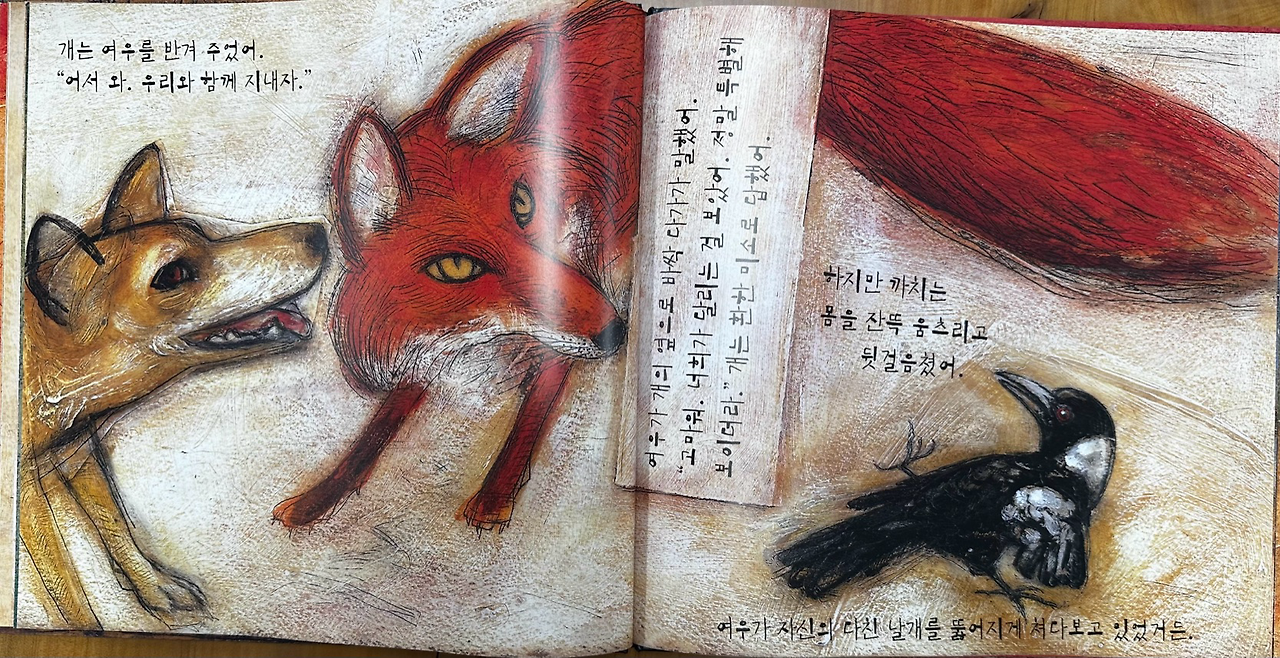 개는 여우를 반겨 주었어.
“어서 와. 우리와 함께 지내자.”
여우가 개의 옆으로 바싹 다가가 말했어.
“고마워. 너희가 달리는 걸 보았어. 정말 특별해
보이더라.” 개는 환한 미소로 답했어.
하지만 까치는
몸을 잔뜩 움츠리고
뒷걸음쳤어.
여우가 자신의 다친 날개를 뚫어지게 쳐다보고 있었거든.